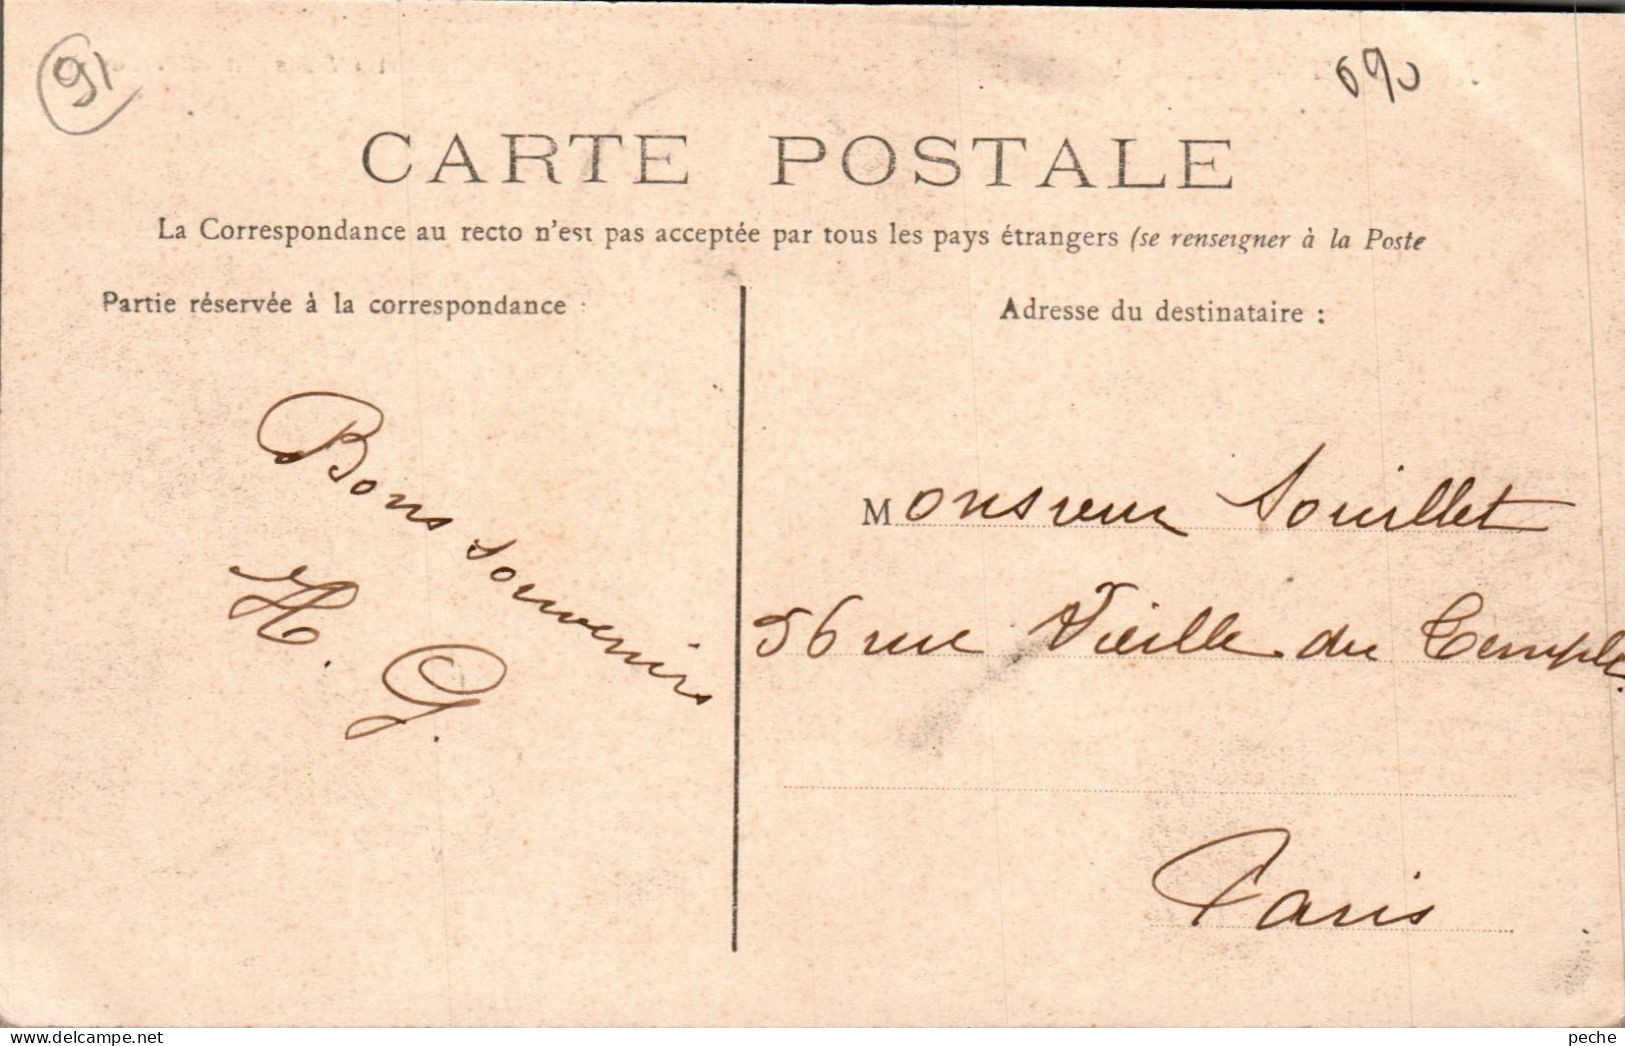 91
690
CARTE POSTALE
La Correspondance au recto n'est pas acceptée par tous les pays étrangers (se renseigner à la Poste
Partie réservée à la correspondance
Adresse du destinataire :
Bons souvenirs
H. G.
Monsieur Souillet
56 rue Vieille du Temple.
Paris
peche